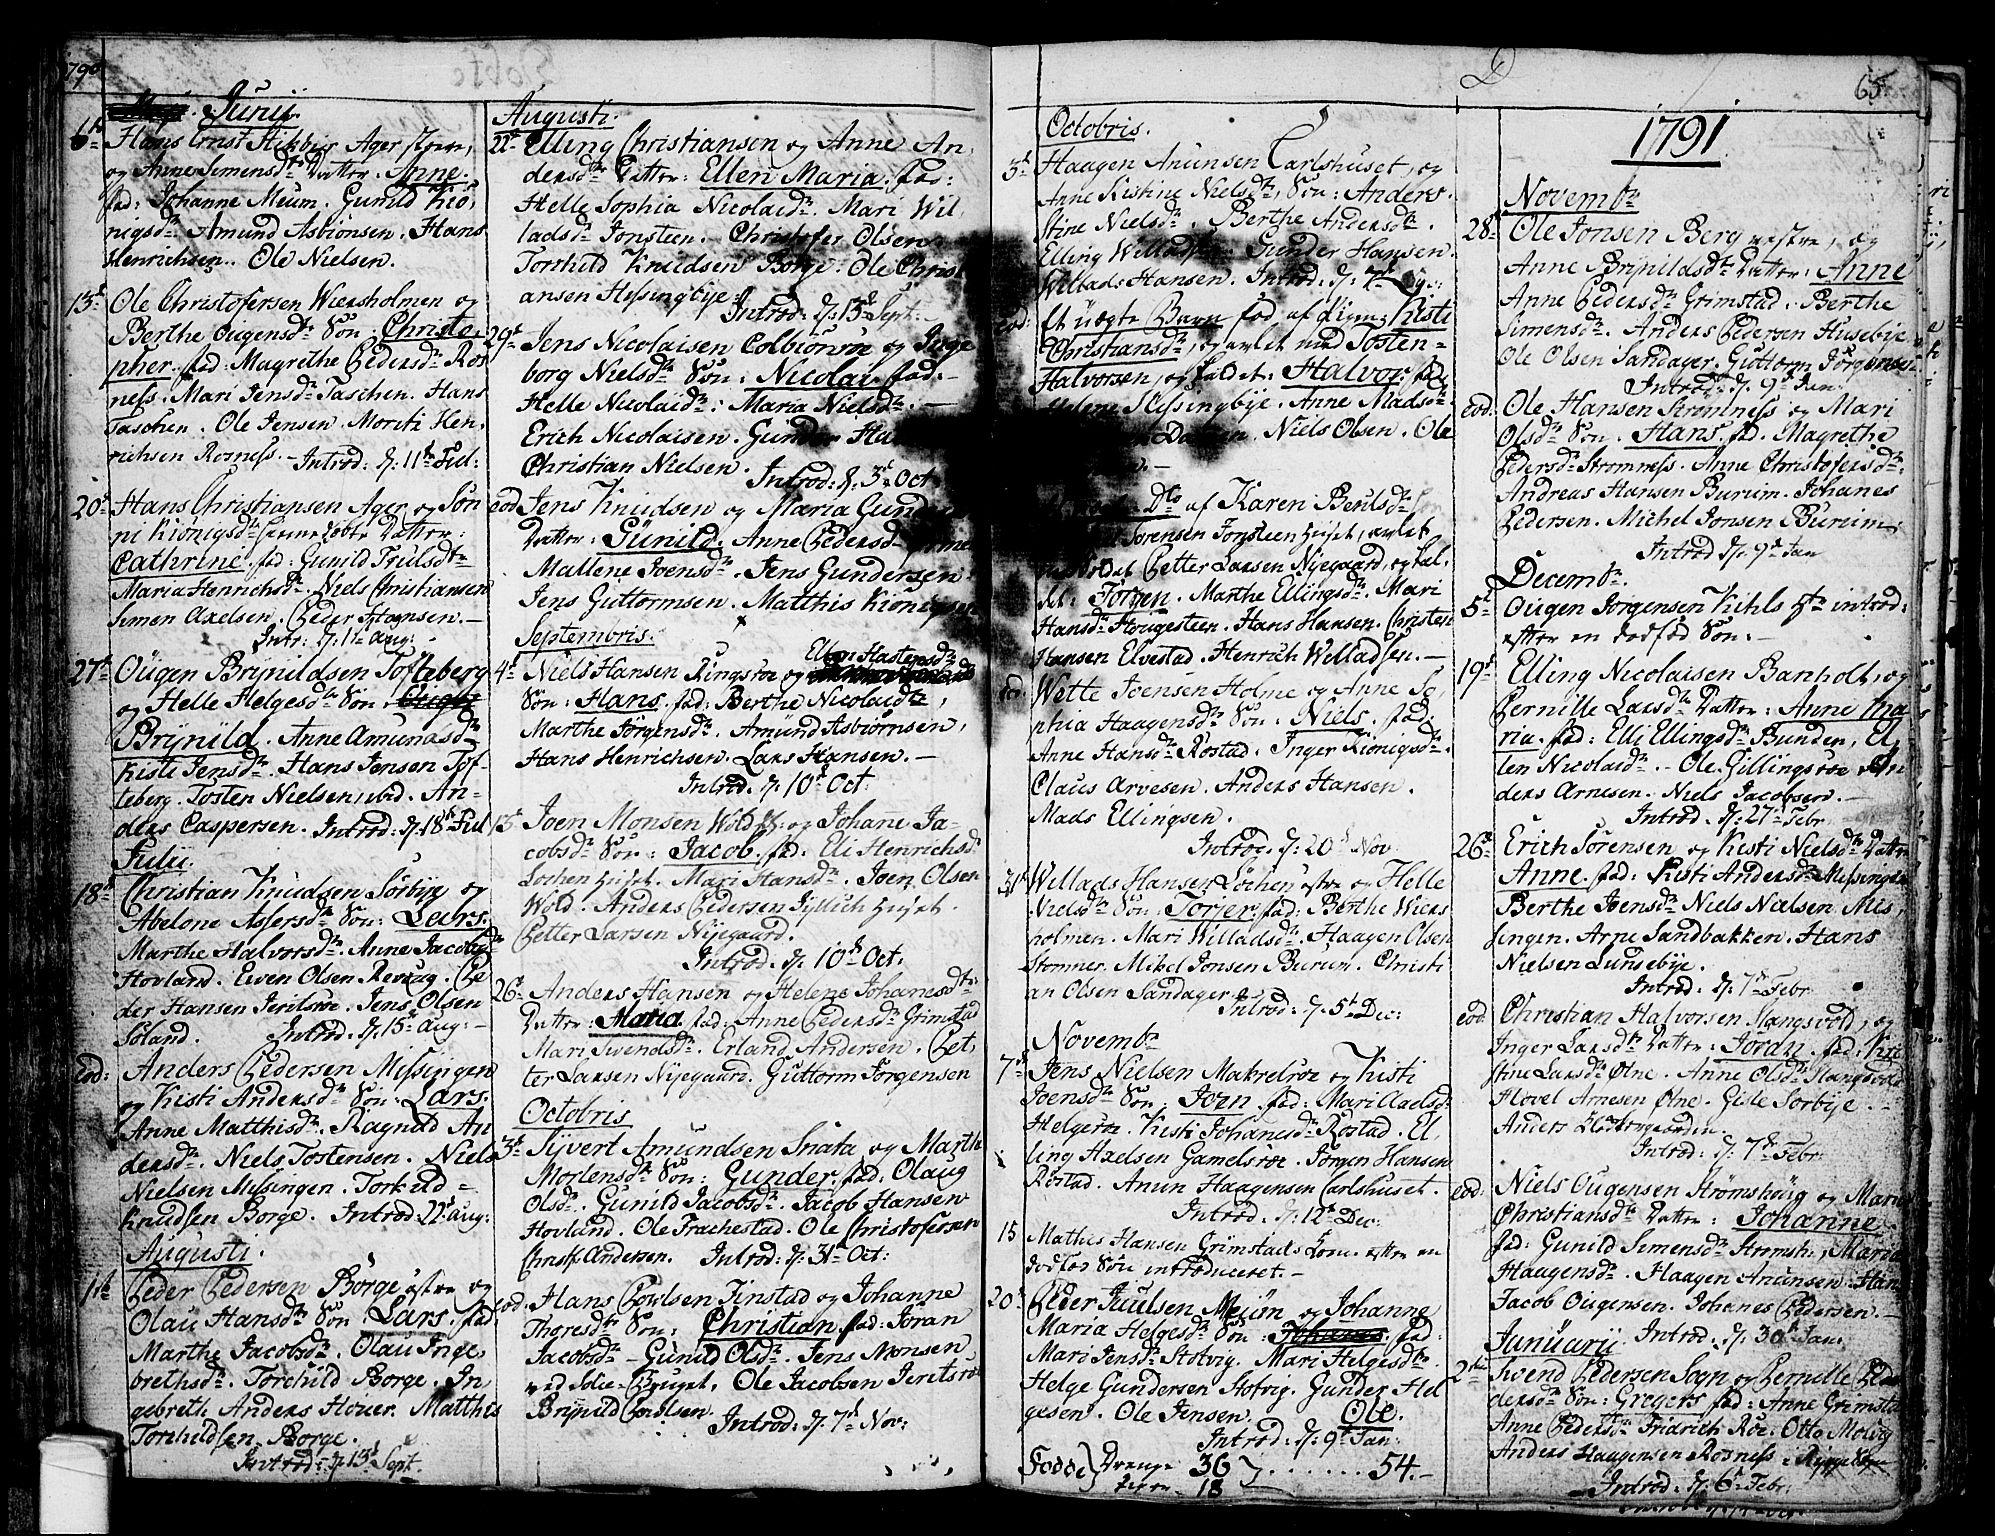 790
Junij.
6t Hans Ernst Hikbir Ager
og Anne Simensdtr Datter: Anne.
fad: Johanne Meum. Gunild Kiö,
nigsdtr Amund Asbiönsen. Hans
Henrichsen. Ole Nielsen.
13t Ole Christofersen Wiersholmen og
Berthe Ougensdtr Sön: Christo,
pher. fad: Magrethe Pedersdtr Ros
ness. Mari Jensdtr Taschen. Hans
Taschen. Ole Jensen. Moriti Hen,
richsen Rosness. Introd: d: 11t Jul:
20t Hans Christiansen Ager og Sön
ni Kiönigsdtr Datter:
Cathrine. fad: Gunild Truls dtr
Maria Henrichsdtr. Niels Christiansen
Simen Axelsen. Peder Hansen.
Intr: d: 11t Aug:
27t Ougen Brynildsen Tofteberg
og Helle Helgesdtr Sön:
Brynild. Anne Amundsdtr
Kisti Jensdtr. Hans Jensen Tof,
teberg. Tosten Nielsen, ibid. An,
ders Caspersen. Introd: d: 18t Jul
Julii.
18t Christian Knudsen Sörbye og
Abelone Assersdtr Sön: Lars.
Marthe Halvorsdtr. Anne Jacobsdtr
Hovland. Even Olsen Revaug. Pe
der Hansen Jeritsröe. Jens Olsen
Söland. Introd: d: 15t Aug:
Eod: Anders Pedersen Missingen
og Kisti Andersdtr Sön: Lars.
Anne Matthisdtr. Ragnild An
dersdtr. Niels Tostensen. Niels
Nielsen Missingen. Torkild
Knudsen Borge. Introd: 22t Aug:
Augusti.
1te Peder Pedersen Borge östre og
Olau Hansdtr Sön: Lars. fad:
Marthe Jacobsdtr. Olau Inge,
brethsdtr. Torchild Borge. In
gebreth. Anders Houer. Matthis
Torchildsen Borge.
Introd: d: 13t Sept.
Augusti.
22t Elling Christiansen og Anne An,
dersdtr Datter: Ellen Maria. fad:
Helle Sophia Nicolaidtr. Mari Wil,
ladsdtr Jonsteen. Christofer Olsen
Torchild Knudsen Borge. Ole Christ
ansen Hessingbye.
Introd: d: 13t Sept:
29t Jens Nicolaisen Colbiönröe og Inge
borg Nielsdtr Sön: Nicolai. fad:
Helle Nicolaidtr. Maria Nielsdtr.
Erich Nicolaisen. Gunder Han
Christian Nielsen. Introd: d: 3t Oct
eod Jens Knudsen og Maria Gund
Datter: Gunild. Anne Pedersdtr
Mallene Joensdtr. Jens Gundersen
Jens Guttormsen. Matthis Kiönigsen
Septembris.
Ellen Hastensdtr
4t Niels Hansen Ringsröe og
Sön: Hans. fad: Berthe Nicolaidtr,
Marthe Jörgensdtr. Amund Asbiörnsen,
Hans Henrichsen. Lars Hansen.
Introd. d: 10t Oct.
13t Joen Monsen Wold og Johane Ja
cobsdtr Sön: Jacob. fad: Eli Henrichsdtr
Löchen Huset. Mari Hansdtr. Joen Olsen
Wold. Anders Pedersen Huset.
Petter Larsen Nÿegaard.
Introd. d: 10t Oct:
26t Anders Hansen og Helene Johanesdtr:
Datter: Maria. fad: Anne Pedersdtr Grimstad
Mari Svendsdtr. Erland Andersen. Pet,
ter Larsen Nÿegaard. Guttorm Jorgensen
Octobris
3t Syvert Amundsen Snata og Marthe
Mortensdtr Sön: Gunder. fad: Olaug
Olsdtr. Gunild Jacobsdtr. Jacob Hansen
Hovland. Ole Trachestad. Ole Christofersen
Christ Andersen. Introd: d: 31t Oct:
eod: Hans Powlsen Tinstad og Johanne
Thoresdtr Sön: Christian. fad: Joran
Jacobsdtr. Gunild Olsdtr. Jens Monsen
Ole Jacobsen Jeritsröe
Brynild Povelsen. Introd: d: 7t Nov:
65
Octobris.
3t Haagen Anunsen Carlshuset, og
Anne Kistine Nielsdtr, Sön: Anders.
Stine Nielsdtr. Berthe Andersdtr.
Elling Willadsen Gunder Hansen.
Willads Hansen. Introd: d: 7t
eod: Et uægte Barn fød af Pigen: Kisti
Christiansdtr, avlet med Tosten
Halvorsen, og kaldet: Halvor. fad
Helene Hessingbye. Anne Madsdtr
Niels Olsen. Ole
Do af Karen Bentsdtr
Sörensen Jonsteen Huset, avlet
af Petter Larsen Nyegaard, og kal
det: Jörgen. Marthe Ellingsdtr. Mari
Hansdtr Hougesteen. Hans Hansen. Christen
Hansen Elvestad. Henrich Willadsen.
Wette Joensen Holme og Anne So,
phia Haagensdtr Sön: Niels. fad:
Anne Hansdtr Rostad. Inger Kiönigsdtr.
Claus Arvesen. Anders Hansen.
Mads Ellingsen.
Introd: d: 20t Nov:
31t Willads Hansen Löchen östre og Helle
Nielsdtr Sön: Torjer. fad: Berthe Wiers
holmen. Mari Willadsdtr. Haagen Olsen
Stomner. Mikel Jonsen Burum. Christi
an Olsen Sandager. Introd: d: 5t Dec:
Novembr
7t Jens Nielsen Makrelröe og Kisti
Joensdtr Sön: Joen. fad: Mari Carlsdtr
Helgeröe. Kisti Johanesdtr Rostad. El,
ling Axelsen Gamelsröe. Jörgen Hansen
Rostad. Anun Haagensen Carlshuset.
Introd: d: 12t Dec:
15 Mathis Hansen Grimstads Kone efter en
dödfød Sön introduceret.
20t Peder Juulsen Meüm og Johanne
Maria Helgesdtr Sön: Johanes. fad:
Mari Jensdtr Stotvig. Mari Helgesdtr.
Helge Gundersen Stotvig. Gunder Hel
gesen. Ole Jensen. Ole.
Introd: d: 9t Jan:
Födde Drenge 36
Piger 18 ...... 54.
1791
Novembr
28t Ole Jonsen Berg vestre, og
Anne Brynildsdtr Datter: Anne
Anne Pedersdtr Grimstad. Berthe
Simensdtr. Anders Pedersen Husebye
Ole Olsen Sandager. Guttorm Jörgensen
Introd: d: 9t Jan:
eod: Ole Hansen Strömness og Mari
Olsdtr Sön: Hans. fad. Magrethe
Pedersdtr Strömness. Anne Christofersdtr.
Andreas Hansen Burum. Johanes
Pedersen. Michel Jonsen Burum.
Introd d: 9t Jan
Decembr.
5t Ougen Jorgensen Kihls introd:
efter en dodfød Sön.
19t Elling Nicolaisen Banholt, og
Pernille Larsdtr Datter: Anne Ma
ria. fad: Elli Ellingsdtr Bunden, El,
len Nicolaidtr. Ole Gillingsröe An
ders Arnesen. Niels Jacobsen.
Introd: d: 27t Febr
26t Erich Sörensen og Kisti Nielsdtr Datter
Anne. fad: Kisti Andersdtr Missingen
Berthe Joensdtr Niels Nielsen Mis,
singen. Arne Sandbakken. Hans
Nielsen Lundebye.
Introd: d: 7t Febr
eod: Christian Halvorsen Slangsvold, og
Inger Larsdtr Datter: Joran. fad: Kri
stine Larsdtr Öine. Anne Olsdtr Slangsvold
Hovel Arnesen Öine. Gisle Sorbÿe.
Anders
Introd: d: 7t Febr:
eod: Niels Ougensen Strömshoug og Maria
Christiansdtr Datter: Johanne
fad: Gunild Simensdtr Strömsh: Maria
Haagensdtr. Haagen Anunsen. Hans
Jacob Ougensen. Johanes Pedersen.
Januarij Introd: d: 30t Jan:
2den Svend Pedersen Sogn og Pernille Pe
dersdtr Sön: Gregers fad: Anne Grimstad
Anne Pedersdtr Fridrich Röe. Otto Molvig
Anders Haagensen Rosness.
Introd: d: 6t Febr: